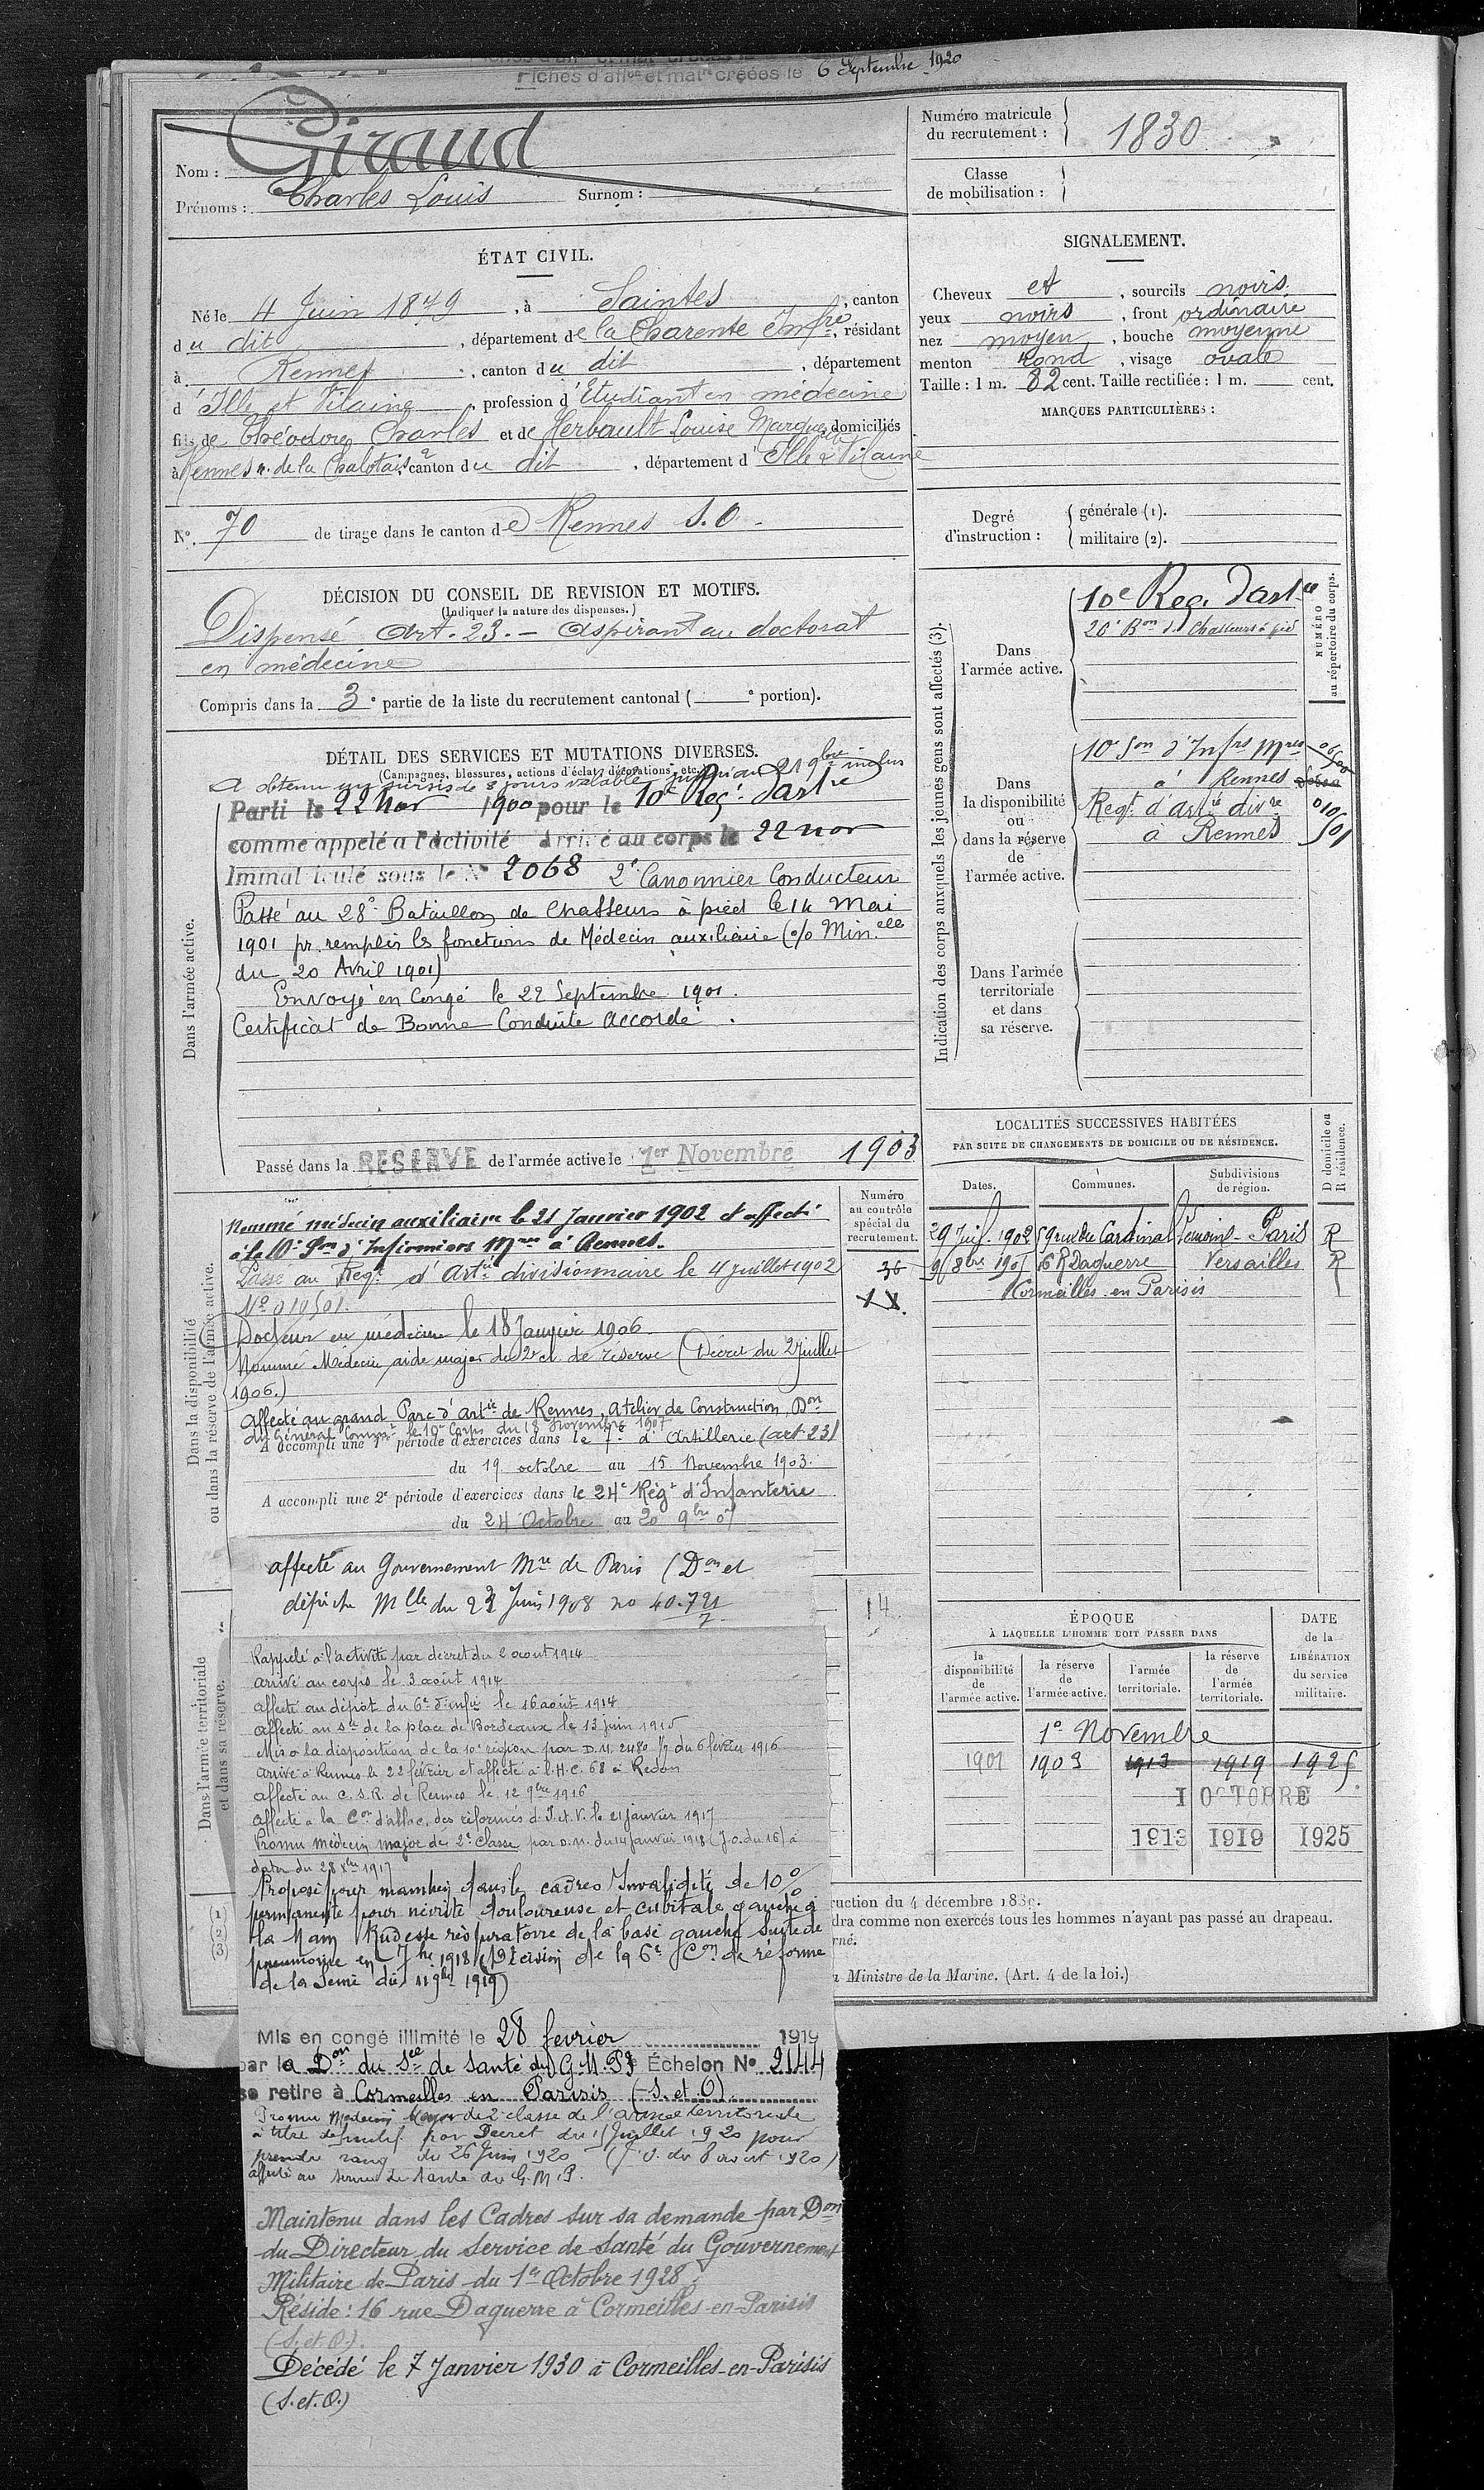 Fiches d'aff.on et mat.le créées le 6 Septembre 1920
Nom : Giraud
Prénoms : Charles Louis Surnom :
Numéro matricule
du recrutement : 1830
Classe
de mobilisation :
ÉTAT CIVIL.
Né le 4 Juin 1879, à Saintes, canton
du dit, département de la Charente Infre, résidant
à Rennes, canton du dit, département
d'Ille et Vilaine, profession d'Etudiant en médecine
fils de Théodore Charles et de Herbault Louise domiciliés
à Rennes r. de la Chalotais 2 canton du dit, département d'Ille & Vilaine
N° 70 de tirage dans le canton de Rennes S.O.
SIGNALEMENT.
Cheveux et, sourcils noirs
yeux noirs, front ordinaire
nez moyen, bouche moyenne
menton rond, visage ovale
Taille : 1 m. 82 cent. Taille rectifiée : 1 m. cent.
MARQUES PARTICULIÈRES :
Degré
d'instruction :
générale (1).
militaire (2).
DÉCISION DU CONSEIL DE REVISION ET MOTIFS.
(Indiquer la nature des dispenses.)
Dispensé Art. 23. - Aspirant au doctorat
en médecine
Compris dans la 3e partie de la liste du recrutement cantonal ( e portion).
DÉTAIL DES SERVICES ET MUTATIONS DIVERSES.
(Campagnes, blessures, actions d'éclat, décorations, etc.)
A obtenu un sursis de 8 jours valable jusqu'au 21 9bre inclus
Parti le 22 Nov 1900 pour le 10e Reg.t d'artie
comme appelé à l'activité Arrivé au corps le 22 nov
Immatriculé sous le N° 2068 2e Canonnier Conducteur
Passé au 28e Bataillon de Chasseurs à pied le 14 Mai
1901 pr remplir les fonctions de Médecin auxiliaire (o/o Min.elle
du 20 Avril 1901)
Envoyé en Congé le 22 Septembre 1901.
Certificat de Bonne Conduite Accordé.
Dans l'armée active.
Passé dans la RESERVE de l'armée active le 1er Novembre 1903
Indication des corps auxquels les jeunes gens sont affectés (3).
NUMÉRO
au répertoire du corps.
Dans
l'armée active.
10e Reg. d'artie
20e Bon de Chasseurs à pied
Dans
la disponibilité
ou
dans la réserve
de
l'armée active.
10e Son d'Infrs Mres
à Rennes
Regt d'artie divre
à Rennes
010501
Dans l'armée
territoriale
et dans
sa réserve.
LOCALITÉS SUCCESSIVES HABITÉES
PAR SUITE DE CHANGEMENTS DE DOMICILE OU DE RÉSIDENCE.
Dates.
Communes.
Subdivisions
de région.
D domicile ou
R résidence.
29 Juil. 1902 59 rue du Cardinal Lemoine - Paris R
9 8bre 1907 16 R Daguerre Versailles R
Cormeilles en Parisis
Dans la disponibilité
ou dans la réserve de l'armée active.
Numéro
au contrôle
spécial du
recrutement.
36
Nommé médecin auxiliaire le 21 Janvier 1902 et affecté
à la 10e Son d'Infirmiers Mres à Rennes.
Passé au Regt d'Artie divisionnaire le 4 juillet 1902
N° 010501.
Docteur en médecine le 18 Janvier 1906.
Nommé Médecin aide major de 2e cl. de réserve (Décret du 2 juillet
1906.)
Affecté au grand Parc d'artie de Rennes, atelier de Construction, Don
du Général Commt le 10e Corps du 18 Novembre 1907
A accompli une 1re période d'exercices dans le 7e d'Artillerie (art 23)
du 19 octobre au 15 Novembre 1903.
A accompli une 2e période d'exercices dans le 24e Régt d'Infanterie
du 24 Octobre au 20 9bre 07
affecté au Gouvernement Mre de Paris (Don et
dépêche Mlle du 23 Juin 1908 no 40.721/7
14
Dans l'armée territoriale
et dans sa réserve.
Rappelé à l'activité par décret du 2 août 1914
Arrivé au corps le 3 août 1914
Affecté au dépôt du 6e d'infie le 16 août 1914
Affecté au Sce de la place de Bordeaux le 13 juin 1915
Mis à la disposition de la 10e région par D.M. 2480 1/7 du 6 février 1916
Arrivé à Rennes le 22 février et affecté à l'H.C. 68 à Redon
Affecté au C.S.R. de Rennes le 12 9bre 1916
Affecté à la Con d'alloc. des réformés d'I.et.V. le 21 janvier 1917
Promu Médecin major de 2e classe par D.M. du 14 Janvier 1918 (J.O. du 16) à
dater du 28 Xbre 1917
Proposé pour maintien dans le cadres Invalidité de 10%
permanente pour névrite douloureuse et cubitale gauche à
la main Rudesse respiratoire de la base gauche suite de
pneumonie en 7bre 1918 (Décision de la 6e Con de réforme
de la Seine du 11 9bre 1919)
ÉPOQUE
À LAQUELLE L'HOMME DOIT PASSER DANS
DATE
de la
LIBÉRATION
du service
militaire.
la
disponibilité
de
l'armée active.
la réserve
de
l'armée active.
l'armée
territoriale.
la réserve
de
l'armée
territoriale.
1er Novembre
1901 1903 1913 1919 1925
1 OCTOBRE
1913 1919 1925
(1)
(2)
(3)
ruction du 4 décembre 1889.
dra comme non exercés tous les hommes n'ayant pas passé au drapeau.
rné.
Ministre de la Marine. (Art. 4 de la loi.)
Mis en congé illimité le 28 fevrier 1919
par la Don du Sce de Santé du G.M.P. Échelon N° 2144
se retire à Cormeilles en Parisis (S. et O)
Promu Médecin Major de 2e classe de l'armée territoriale
à titre définitif par Décret du Juillet 1920 pour
prendre rang du 26 Juin 1920 (J.O. du 8 août 1920)
affecté au service de santé du G.M.P.
Maintenu dans les Cadres sur sa demande par Don
du Directeur du Service de Santé du Gouvernement
Militaire de Paris du 1er Octobre 1928.
Réside : 16 rue Daguerre à Cormeilles-en-Parisis
(S. et. O.).
Décédé le 7 Janvier 1930 à Cormeilles-en-Parisis
(S. et. O.)